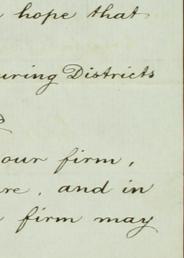 hope that
uring Districts
our firm,
re, and in
firm may